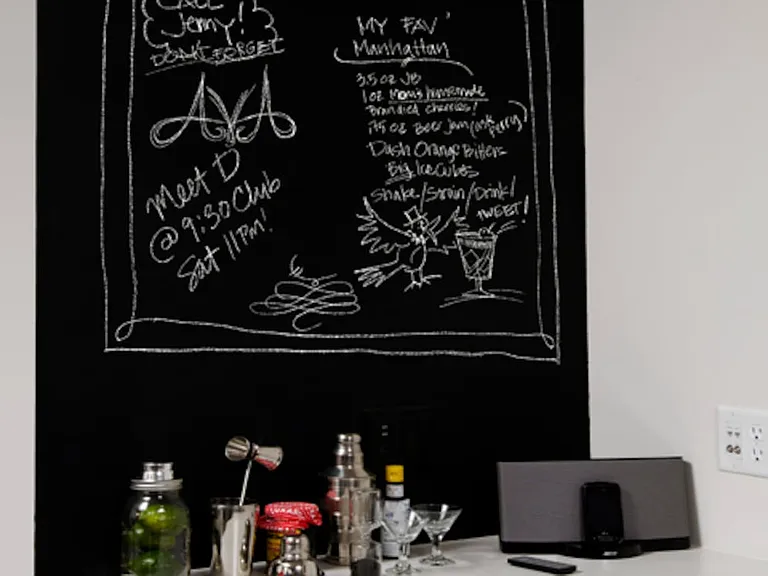 CALL
Jenny!
DON'T FORGET
Meet D
@ 9:30 Club
Sat 11PM!
MY FAV'
Manhattan
3.5 oz JB
1 oz Mom's homemade
Brandied cherries!
.75 oz Beer Jam (ask Perry)
Dash Orange Bitters
Big Ice Cubes
Shake/Strain/Drink!
TWEET!